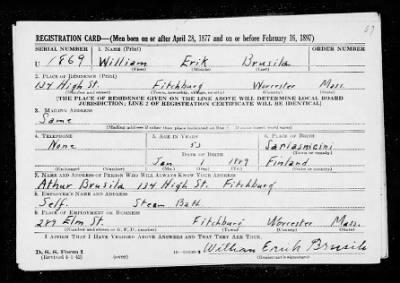 67
REGISTRATION CARD—(Men born on or after April 28, 1877 and on or before February 16, 1897)
SERIAL NUMBER 1. NAME (Print) ORDER NUMBER
U 1869 William Erik Brusila
(First) (Middle) (Last)
2. PLACE OF RESIDENCE (Print)
134 High St. Fitchburg Worcester Mass.
(Number and street) (Town, township, village, or city) (County) (State)
[THE PLACE OF RESIDENCE GIVEN ON THE LINE ABOVE WILL DETERMINE LOCAL BOARD
JURISDICTION; LINE 2 OF REGISTRATION CERTIFICATE WILL BE IDENTICAL]
3. MAILING ADDRESS
Same
[Mailing address if other than place indicated on line 2.
4. TELEPHONE 5. AGE IN YEARS 6. PLACE OF BIRTH
None 53
DATE OF BIRTH (Town or county)
Jan 1 Finland
(Mo.) (Day) (Yr.) (State or country)
7. NAME AND ADDRESS OF PERSON WHO WILL ALWAYS KNOW YOUR ADDRESS
Athur Brusila 134 High St. Fitchburg
8. EMPLOYER'S NAME AND ADDRESS
Self. Steam Bath
9. PLACE OF EMPLOYMENT OR BUSINESS
289 Elm St. Fitchburg Worcester Mass.
(Number and street or R. F. D. number) (Town) (County) (State)
I AFFIRM THAT I HAVE VERIFIED ABOVE ANSWERS AND THAT THEY ARE TRUE.
D. S. S. Form 1
(Revised 4-1-42) (over) William Erick Brusila
(Registrant's signature)